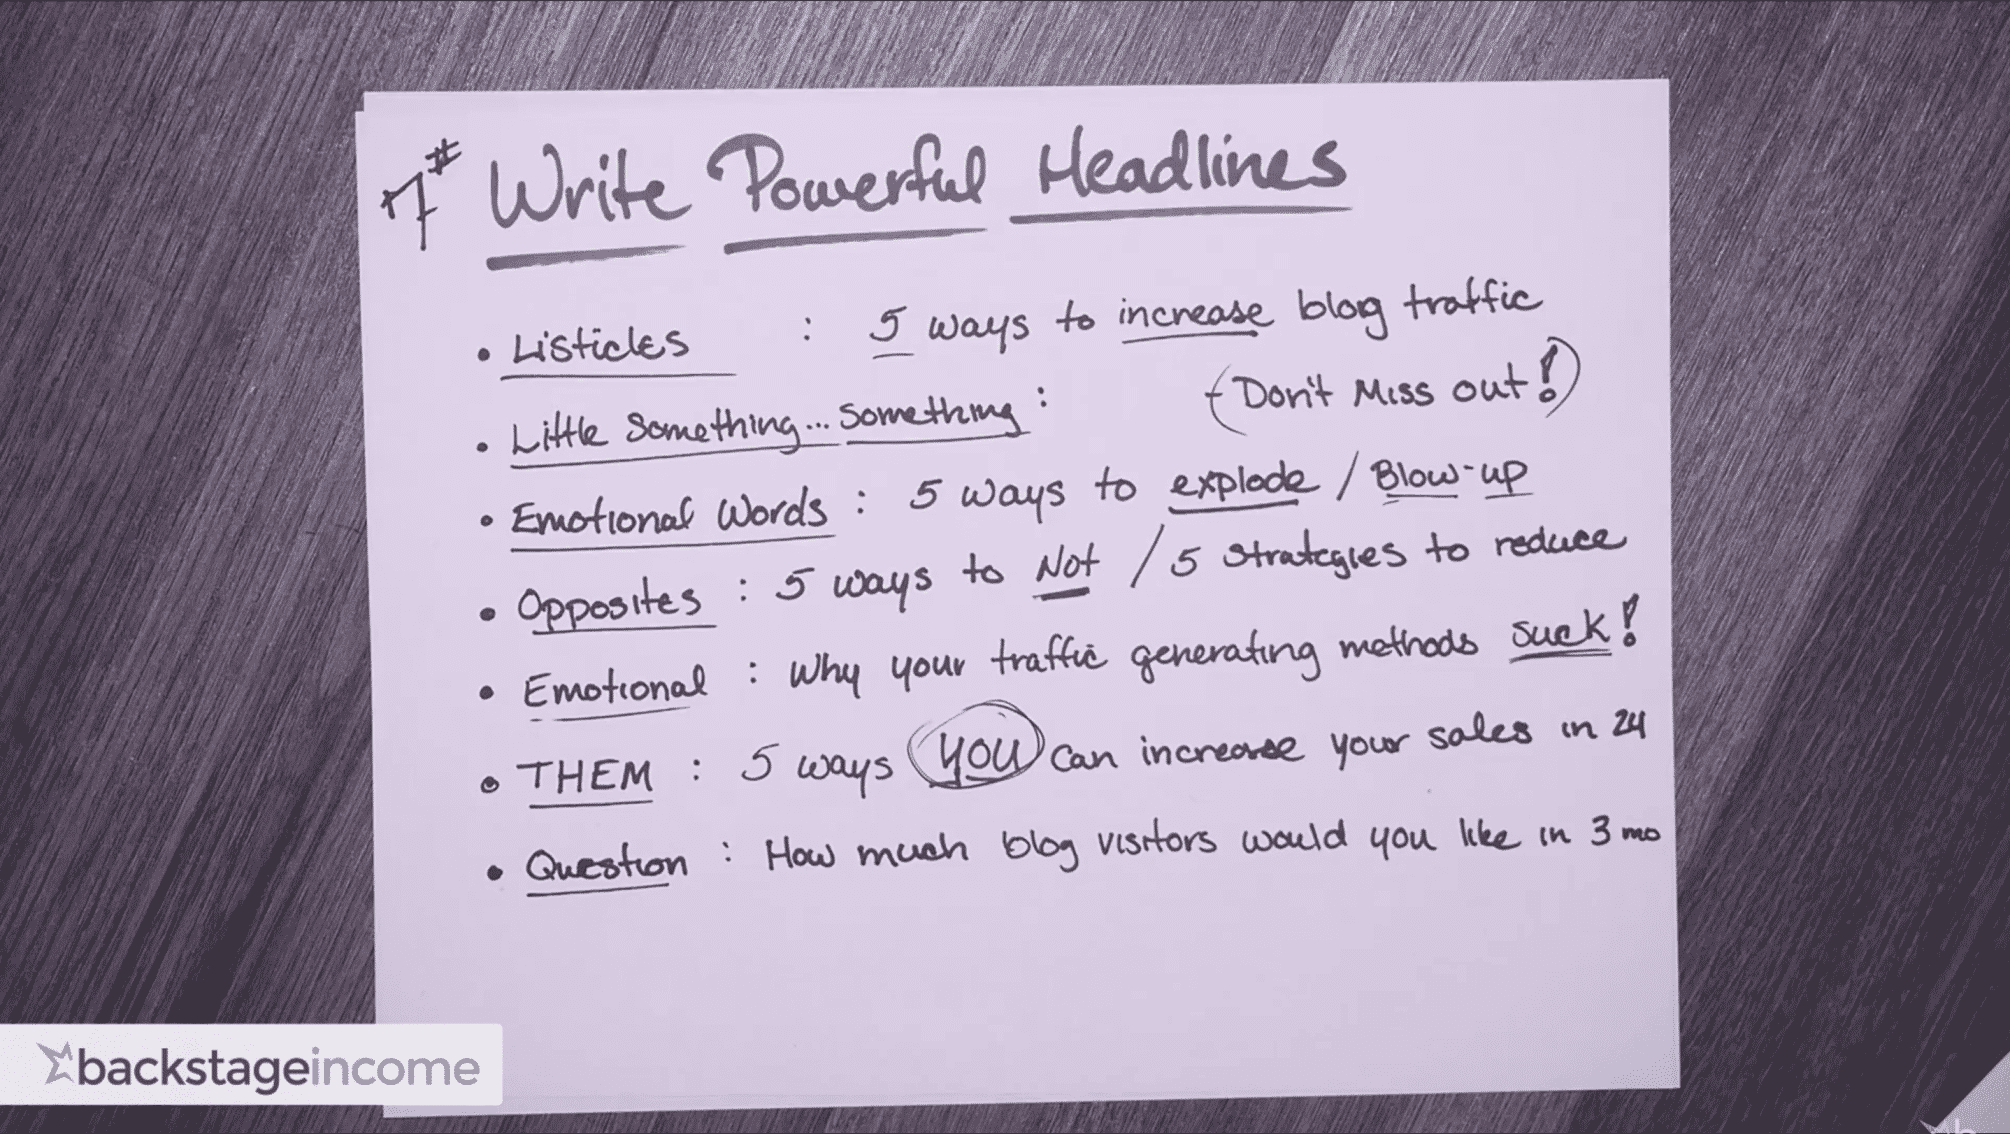 7# Write Powerful Headlines
• Listicles : 5 ways to increase blog traffic
• Little Something... Something : + (Don't Miss out!)
• Emotional Words : 5 ways to explode / Blow-up
• Opposites : 5 ways to Not / 5 strategies to reduce
• Emotional : Why your traffic generating methods suck!
• THEM : 5 ways you can increase your sales in 24
• Question : How much blog visitors would you like in 3 mo
backstageincome